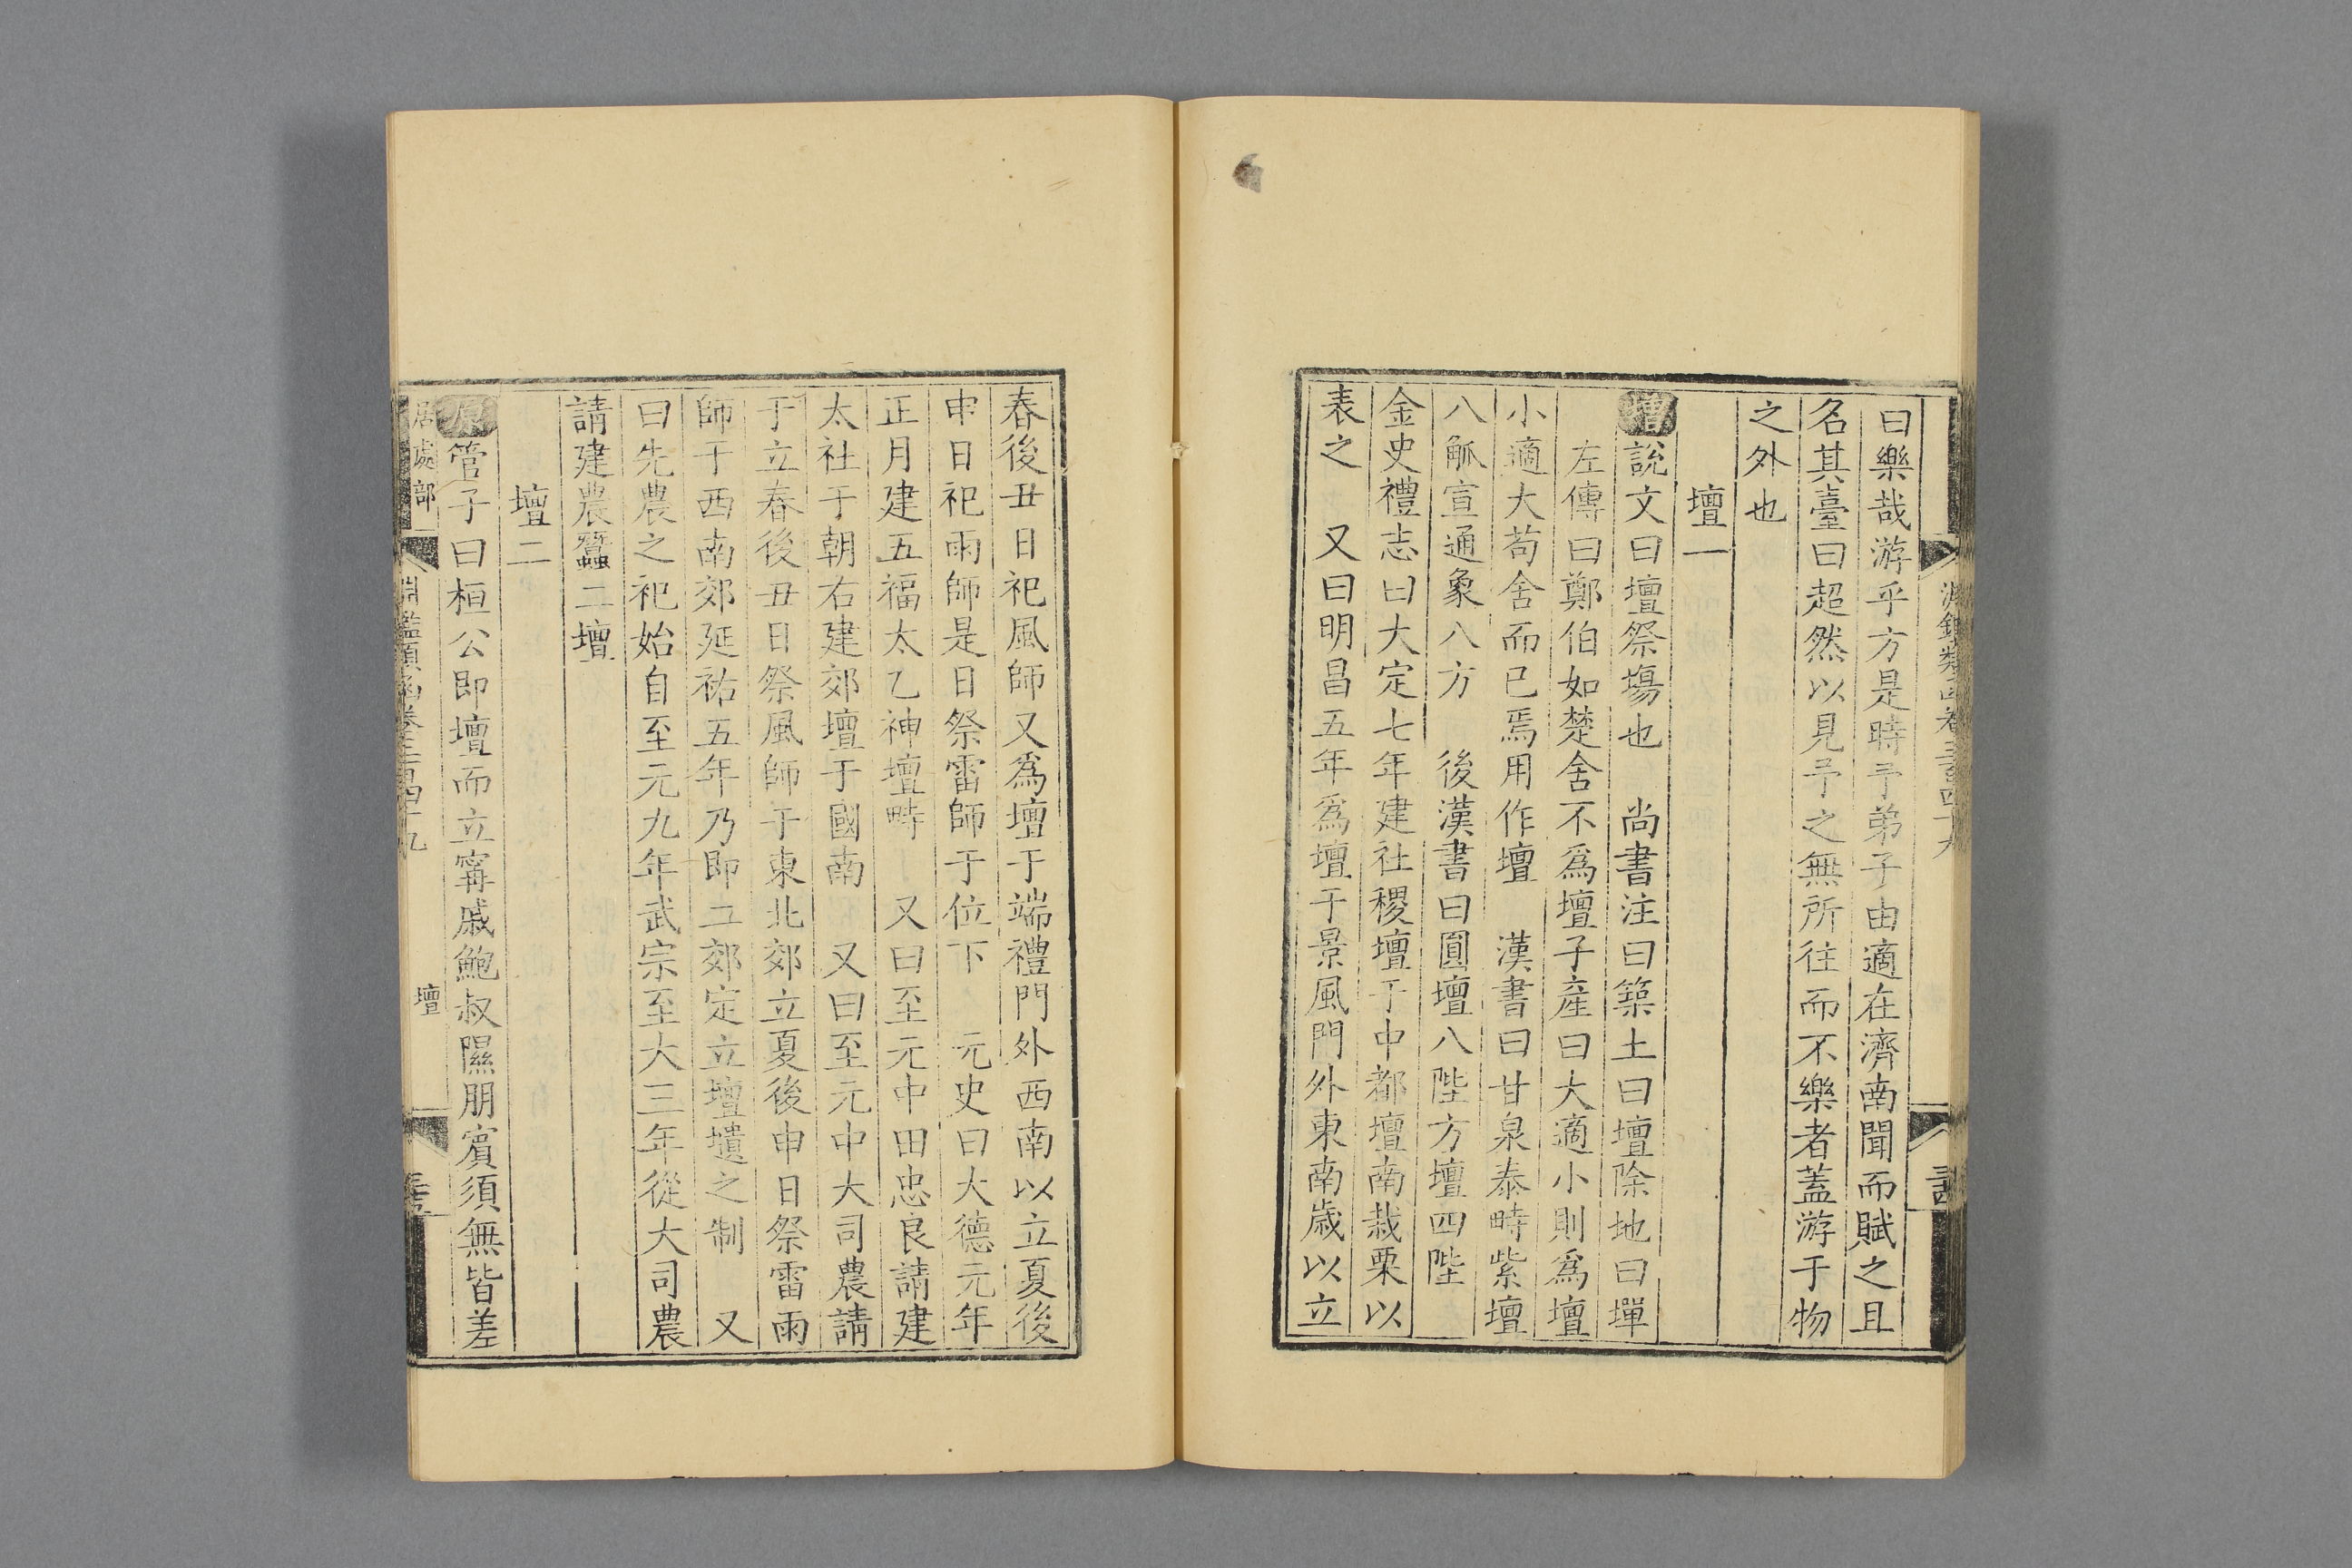 曰樂哉游乎方是時予弟子由適在濟南聞而賦之且
名其臺曰超然以見予之無所往而不樂者蓋游于物
之外也
壇一
增說文曰壇祭場也 尚書注曰築土曰壇除地曰墠
左傳曰鄭伯如楚舍不爲壇子產曰大適小則爲壇
小適大苟舍而已焉用作壇 漢書曰甘泉泰畤紫壇
八觚宣通象八方 後漢書曰圓壇八陛方壇四陛
金史禮志曰大定七年建社稷壇于中都壇南栽栗以
表之 又曰明昌五年爲壇于景風門外東南歲以立
春後丑日祀風師又爲壇于端禮門外西南以立夏後
申日祀雨師是日祭雷師于位下 元史曰大德元年
正月建五福太乙神壇畤 又曰至元中田忠良請建
太社于朝右建郊壇于國南 又曰至元中大司農請
于立春後丑日祭風師于東北郊立夏後申日祭雷雨
師于西南郊延祐五年乃即二郊定立壇壝之制 又
曰先農之祀始自至元九年武宗至大三年從大司農
請建農蠶二壇
壇二
原管子曰桓公即壇而立甯戚鮑叔隰朋賓須無皆差
居處部 淵鑑類函卷三百四十九 壇